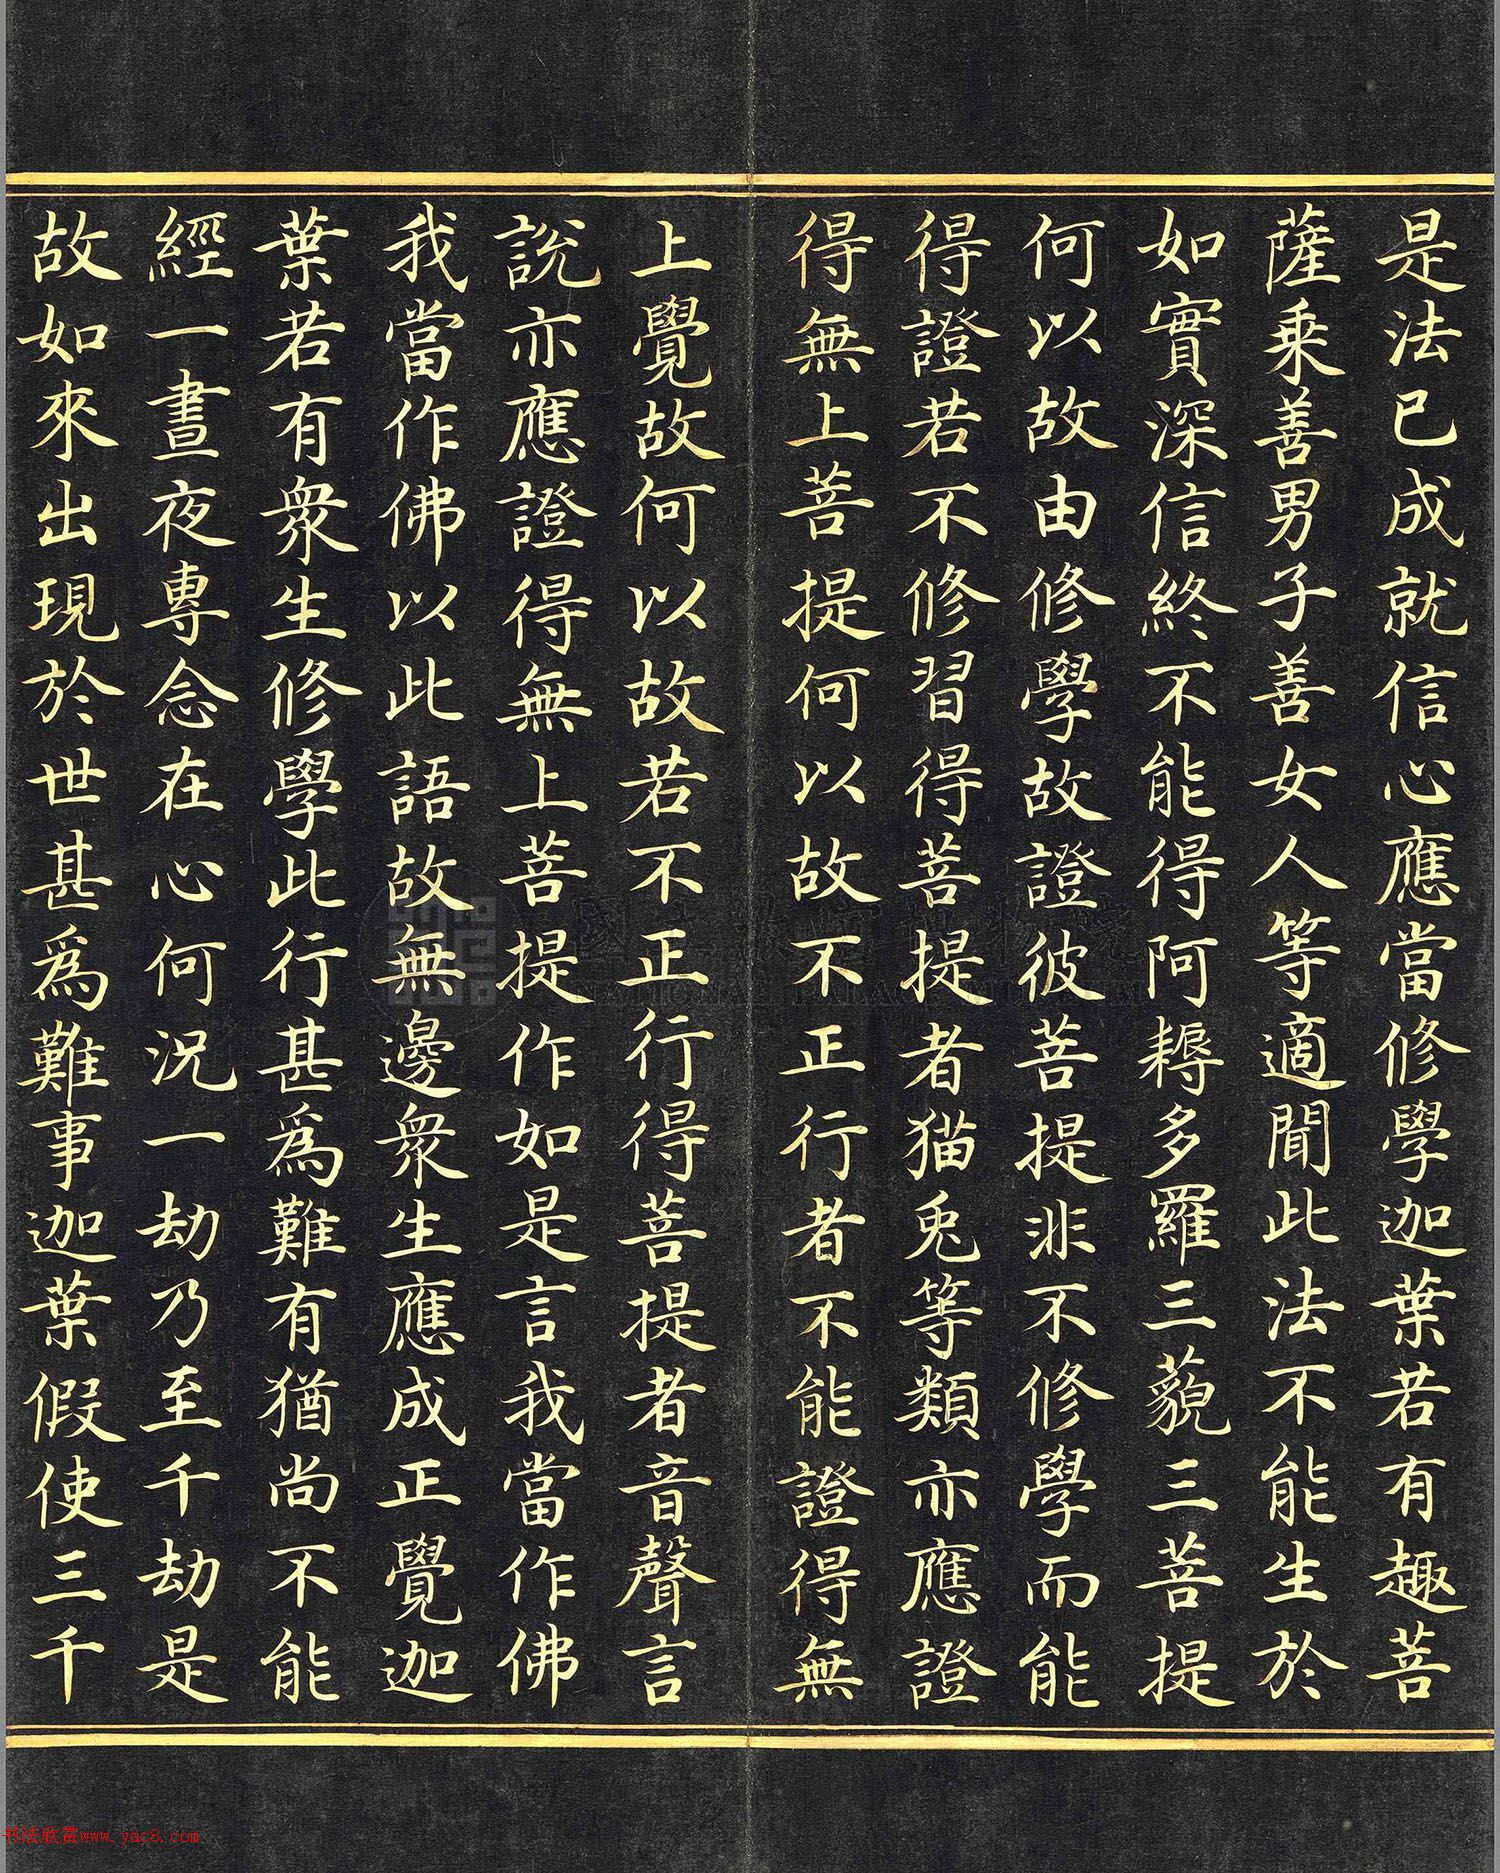 是法已成就信心應當修學迦葉若有趣菩
薩乘善男子善女人等適聞此法不能生於
如實深信終不能得阿耨多羅三藐三菩提
何以故由修學故證彼菩提非不修學而能
得證若不修習得菩提者猫兎等類亦應證
得無上菩提何以故不正行者不能證得無
上覺故何以故若不正行得菩提者音聲言
說亦應證得無上菩提作如是言我當作佛
我當作佛以此語故無邊衆生應成正覺迦
葉若有衆生修學此行甚爲難有猶尚不能
經一晝夜專念在心何況一劫乃至千劫是
故如來出現於世甚爲難事迦葉假使三千
NATIONAL PALACE MUSEUM
书法欣赏www.yac8.com